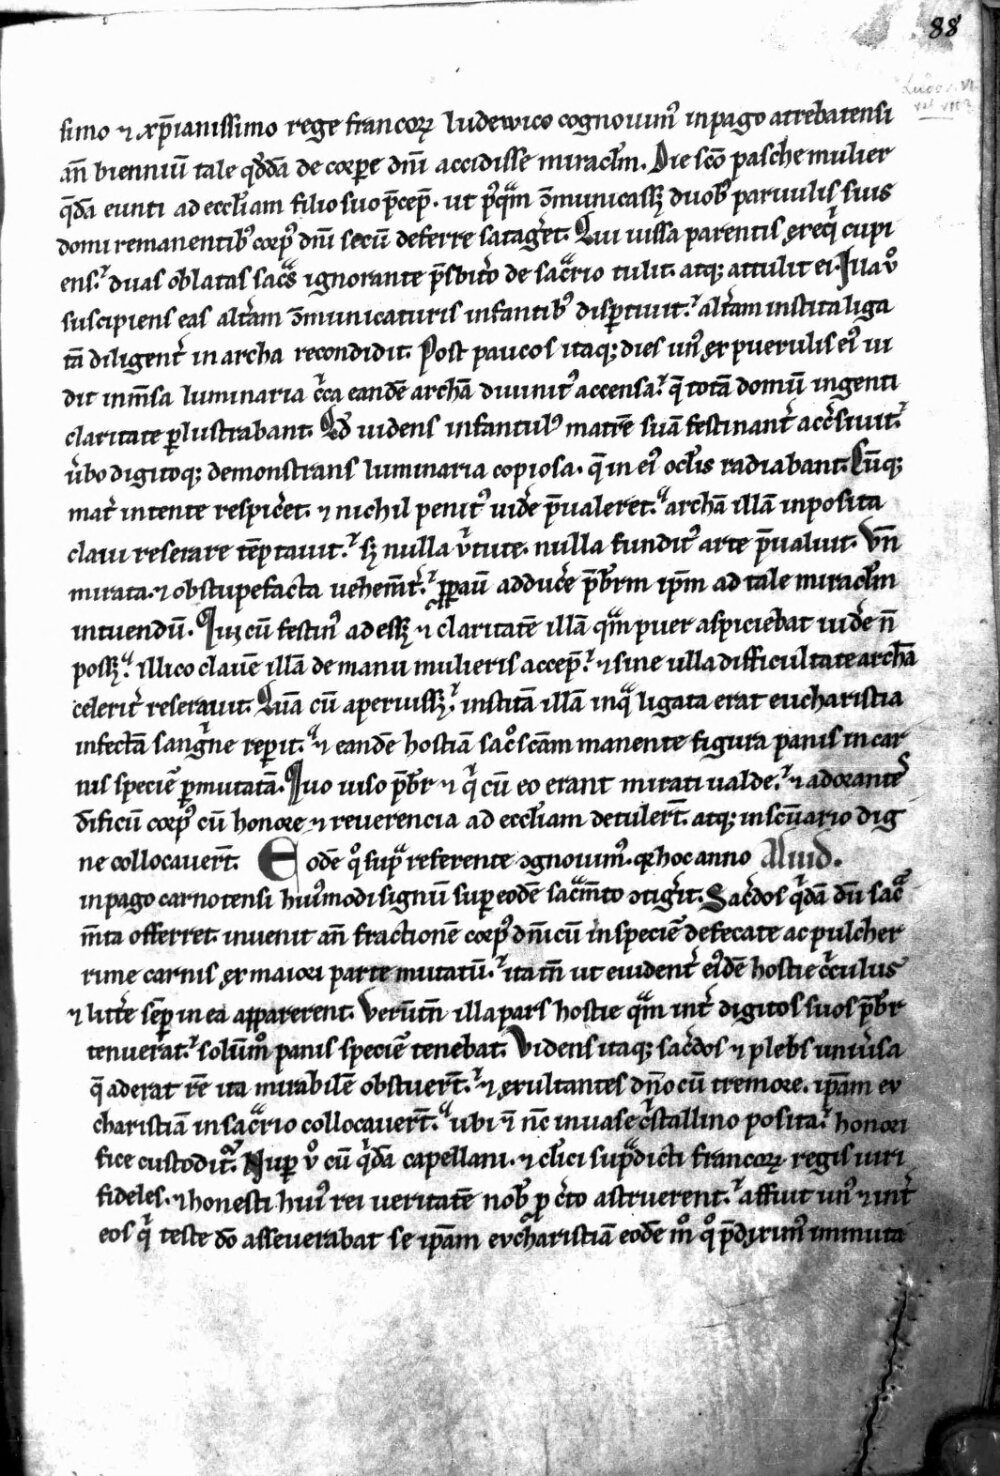 88
simo ⁊ xp̄ianissimo rege francoꝝ ludewico cognouim᷒ in pago atrebatensi
an̄ bienniū tale qd̓dā de corꝑe dn̄i accidisse miracl̄m. Die sc̄o pasche mulier
q̄dā eunti ad eccl̓iam filio suo p̄cep̄. ut p᷒qᷓm ꝯmunicassꝫ duob᷒ paruulis suis
domi remanentib᷒ corp᷒ dn̄i secū deferre satag̓et. Qui iussa parentis exeqͥ cupi
ens. duas oblatas sacᷓs ignorante p̄sbit̓o de sacᷓrio tulit. atqꝫ attulit ei. Illa v̊
suscipiens eas alt̓am ꝯmunicaturis infantib᷒ disꝑtiuit. alt̓am instita liga
tā diligent̓ in archa recondidit. Post paucos itaqꝫ dies un᷒ ex puerulis ei᷒ ui
dit inm̄sa luminaria cͥca eandē archā diuinit᷒ accensa. q̄ totā domū ingenti
claritate ꝑlustrabant. Qd̓ videns infantulus matrē suā festinant̓ acc̓siuit.
ūbo digitoqꝫ demonstrans luminaria copiosa. q̄ in ei᷒ ocl̓is radiabant. Cūqꝫ
mat̓ intente respic̓et. ⁊ nichil penit᷒ uid̓e p̄ualeret. archā illā inposita
claui reserare tēptauit. sꝫ nulla v̓tute. nulla fundit᷒ arte p̄ualuit. Vn̄
mirata. ⁊ obstupefacta uehem̄t̓. adduc̓e p̄br̄m ip̄m ad tale miracl̄m
intuendū. Qui cū festin᷒ adessꝫ ⁊ claritatē illā qᷓm puer aspiciebat uid̓e n̄
possꝫ. illico clauē illā de manu mulieris accep̄. ⁊ sine ulla difficultate archā
celerit̓ reserauit. Quā cū aperuissꝫ. institā illā in qᷓ ligata erat eucharistia
infectā sangͥne reꝑit. ⁊ eandē hostiā sac̊scām manente figura panis in car
nis speciē ꝑmutatā. Quo uiso p̄br̄ ⁊ qͥ cū eo erant mirati ualde. ⁊ adorantes
d̄ificū corp᷒ cū honore ⁊ reuerencia ad eccl̓iam detuler̄t. atqꝫ in sc̄uario dig
ne collocauer̄t. Eodē q̊ supᷓ referente ꝯgnouim᷒. qꝛ hoc anno Aliud.
in pago carnotensi hui᷒modi signū suꝑ eodē sacᷓm̄to ꝯtig̓it. Sac̓dos qͥdā dū sacᷓ
m̄ta offerret. inuenit an̄ fractionē corp᷒ dn̄icū in speciē defecate ac pulcher
rime carnis ex maiori parte mutatū. ita tn̄ ut euident̓ ei᷒dē hostie cͥculus
⁊ litt̓e sēꝑ in ea apparerent. Verūtn̄ illa pars hostie qᷓm int̓ digitos suos p̄br̄
tenuerat. solūm̊ panis speciē tenebat. Videns itaqꝫ sac̓dos ⁊ plebs uniu̓sa
q̄ aderat rē ita mirabilē obstuer̄t. ⁊ exultantes dn̄o cū tremore. ip̄am eu
charistiā in sacᷓrio collocauer̄t. ubi ⁊ n̄c in uase cͥstallino posita. honori
fice custodit᷑. Nuꝑ v̊ cū qͥdā capellani. ⁊ cl̓ici supᷓdicti francoꝝ regis uiri
fideles. ⁊ honesti hui᷒ rei ueritatē nob᷒ ꝓ c̓to astruerent. affuit un᷒ ⁊ int̓
eos qͥ teste dō asseuerabat se ip̄am eucharistiā eodē m̊ q̊ p̄dixim᷒ inmuta